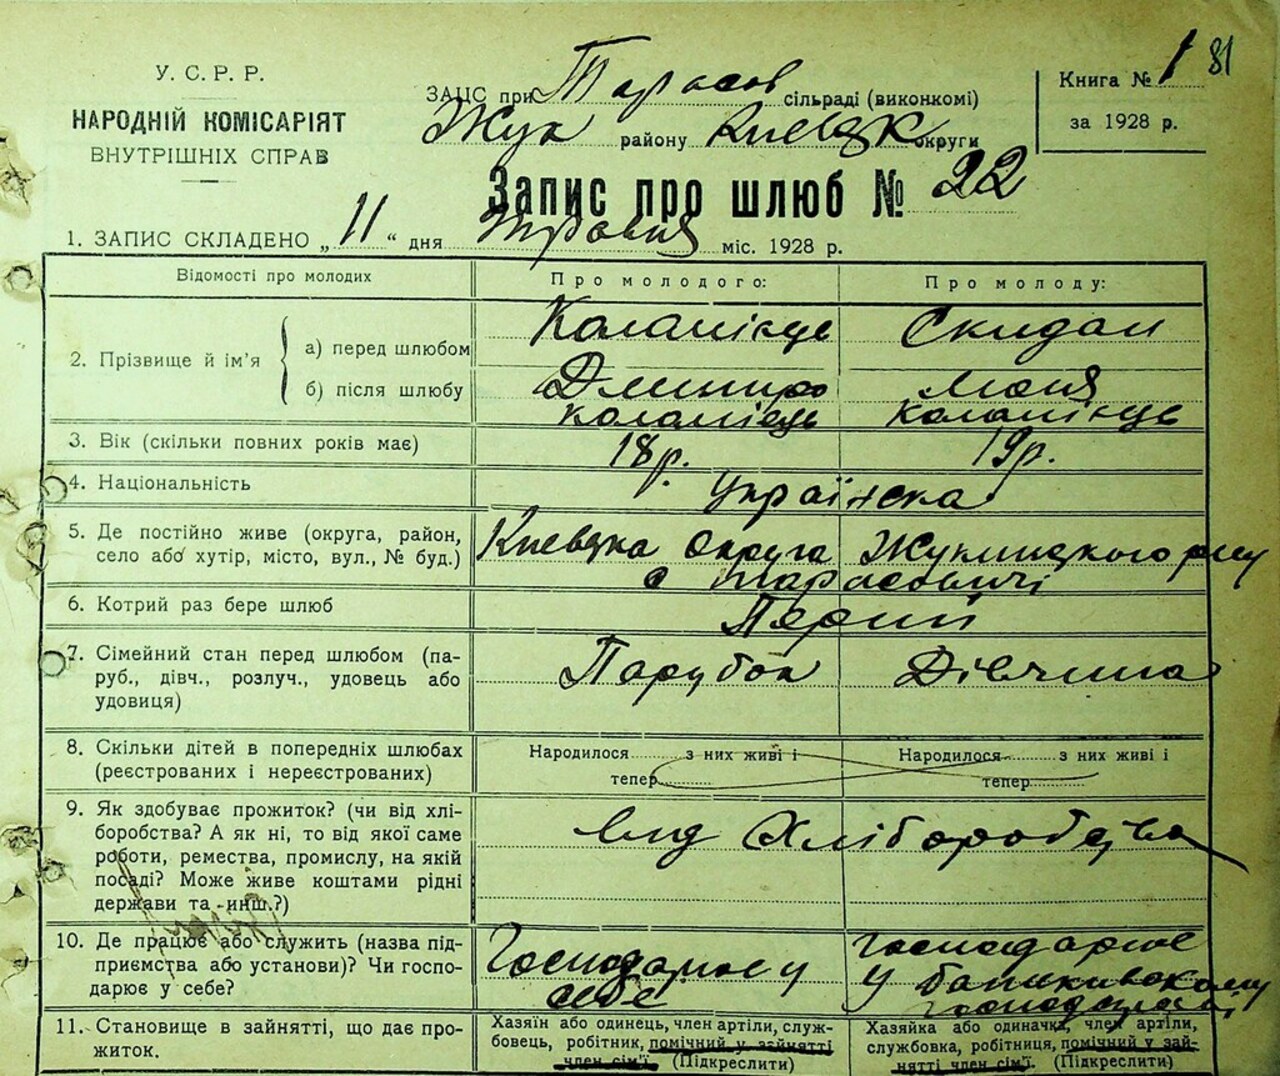 81
У. С. Р. Р.
НАРОДНІЙ КОМІСАРІЯТ
ВНУТРІШНІХ СПРАВ
ЗАЦС при Тарасов сільраді (виконкомі)
Жук району Киевск округи
Книга № 1
за 1928 р.
Запис про шлюб № 22
1. ЗАПИС СКЛАДЕНО „ 11 “ дня Травня міс. 1928 р.
Відомості про молодих
Про молодого:
Про молоду:
2. Прізвище й ім’я
а) перед шлюбом
б) після шлюбу
Коломієць
Скидан
Дмитро
Коломієць
Коломієць
3. Вік (скільки повних років має)
18 р.
19 р.
4. Національність
Українска
5. Де постійно живе (округа, район,
село або хутір, місто, вул., № буд.)
Киевска округа
с Тарасовичі
6. Котрий раз бере шлюб
Перший
7. Сімейний стан перед шлюбом (па-
руб., дівч., розлуч., удовець або
удовиця)
Парубок
Дівчина
8. Скільки дітей в попередніх шлюбах
(реєстрованих і нереєстрованих)
Народилося з них живі і
тепер
Народилося з них живі і
тепер
9. Як здобуває прожиток? (чи від хлі-
боробства? А як ні, то від якої саме
роботи, ремества, промислу, на якій
посаді? Може живе коштами рідні
держави та инш.?)
від Хліборобства
10. Де працює або служить (назва під-
приємства або установи)? Чи госпо-
дарює у себе?
Господарює у
себе
господарює
у батьківскому
господарстві
11. Становище в зайнятті, що дає про-
житок.
Хазяїн або одинець, член артіли, служ-
бовець, робітник, помічний у зайнятті
член сім’ї. (Підкреслити)
Хазяйка або одиначка, член артіли,
службовка, робітниця, помічний у зай-
нятті член сім’ї. (Підкреслити)